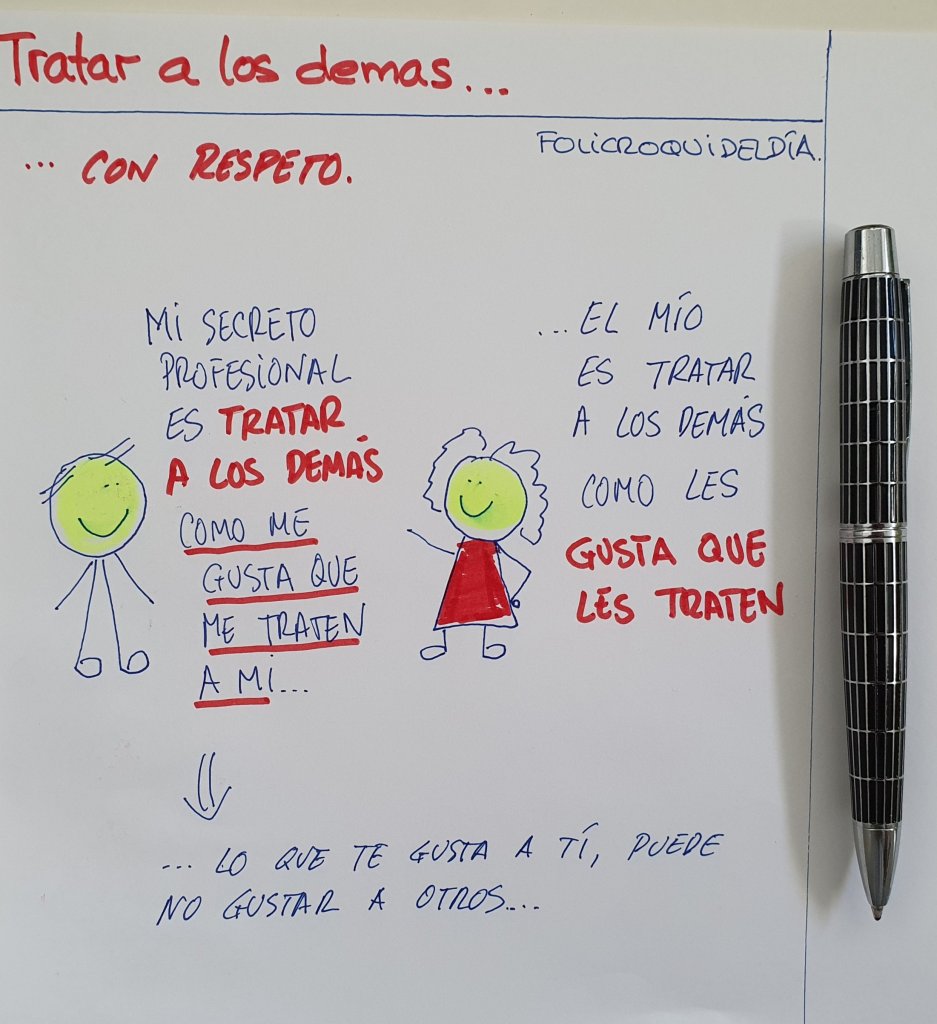 Tratar a los demas...
FOLICROQUIDELDÍA.
... CON RESPETO.
MI SECRETO
PROFESIONAL
ES TRATAR
A LOS DEMÁS
COMO ME
GUSTA QUE
ME TRATEN
A MI...
...EL MÍO
ES TRATAR
A LOS DEMÁS
COMO LES
GUSTA QUE
LES TRATEN
... LO QUE TE GUSTA A TÍ, PUEDE
NO GUSTAR A OTROS....